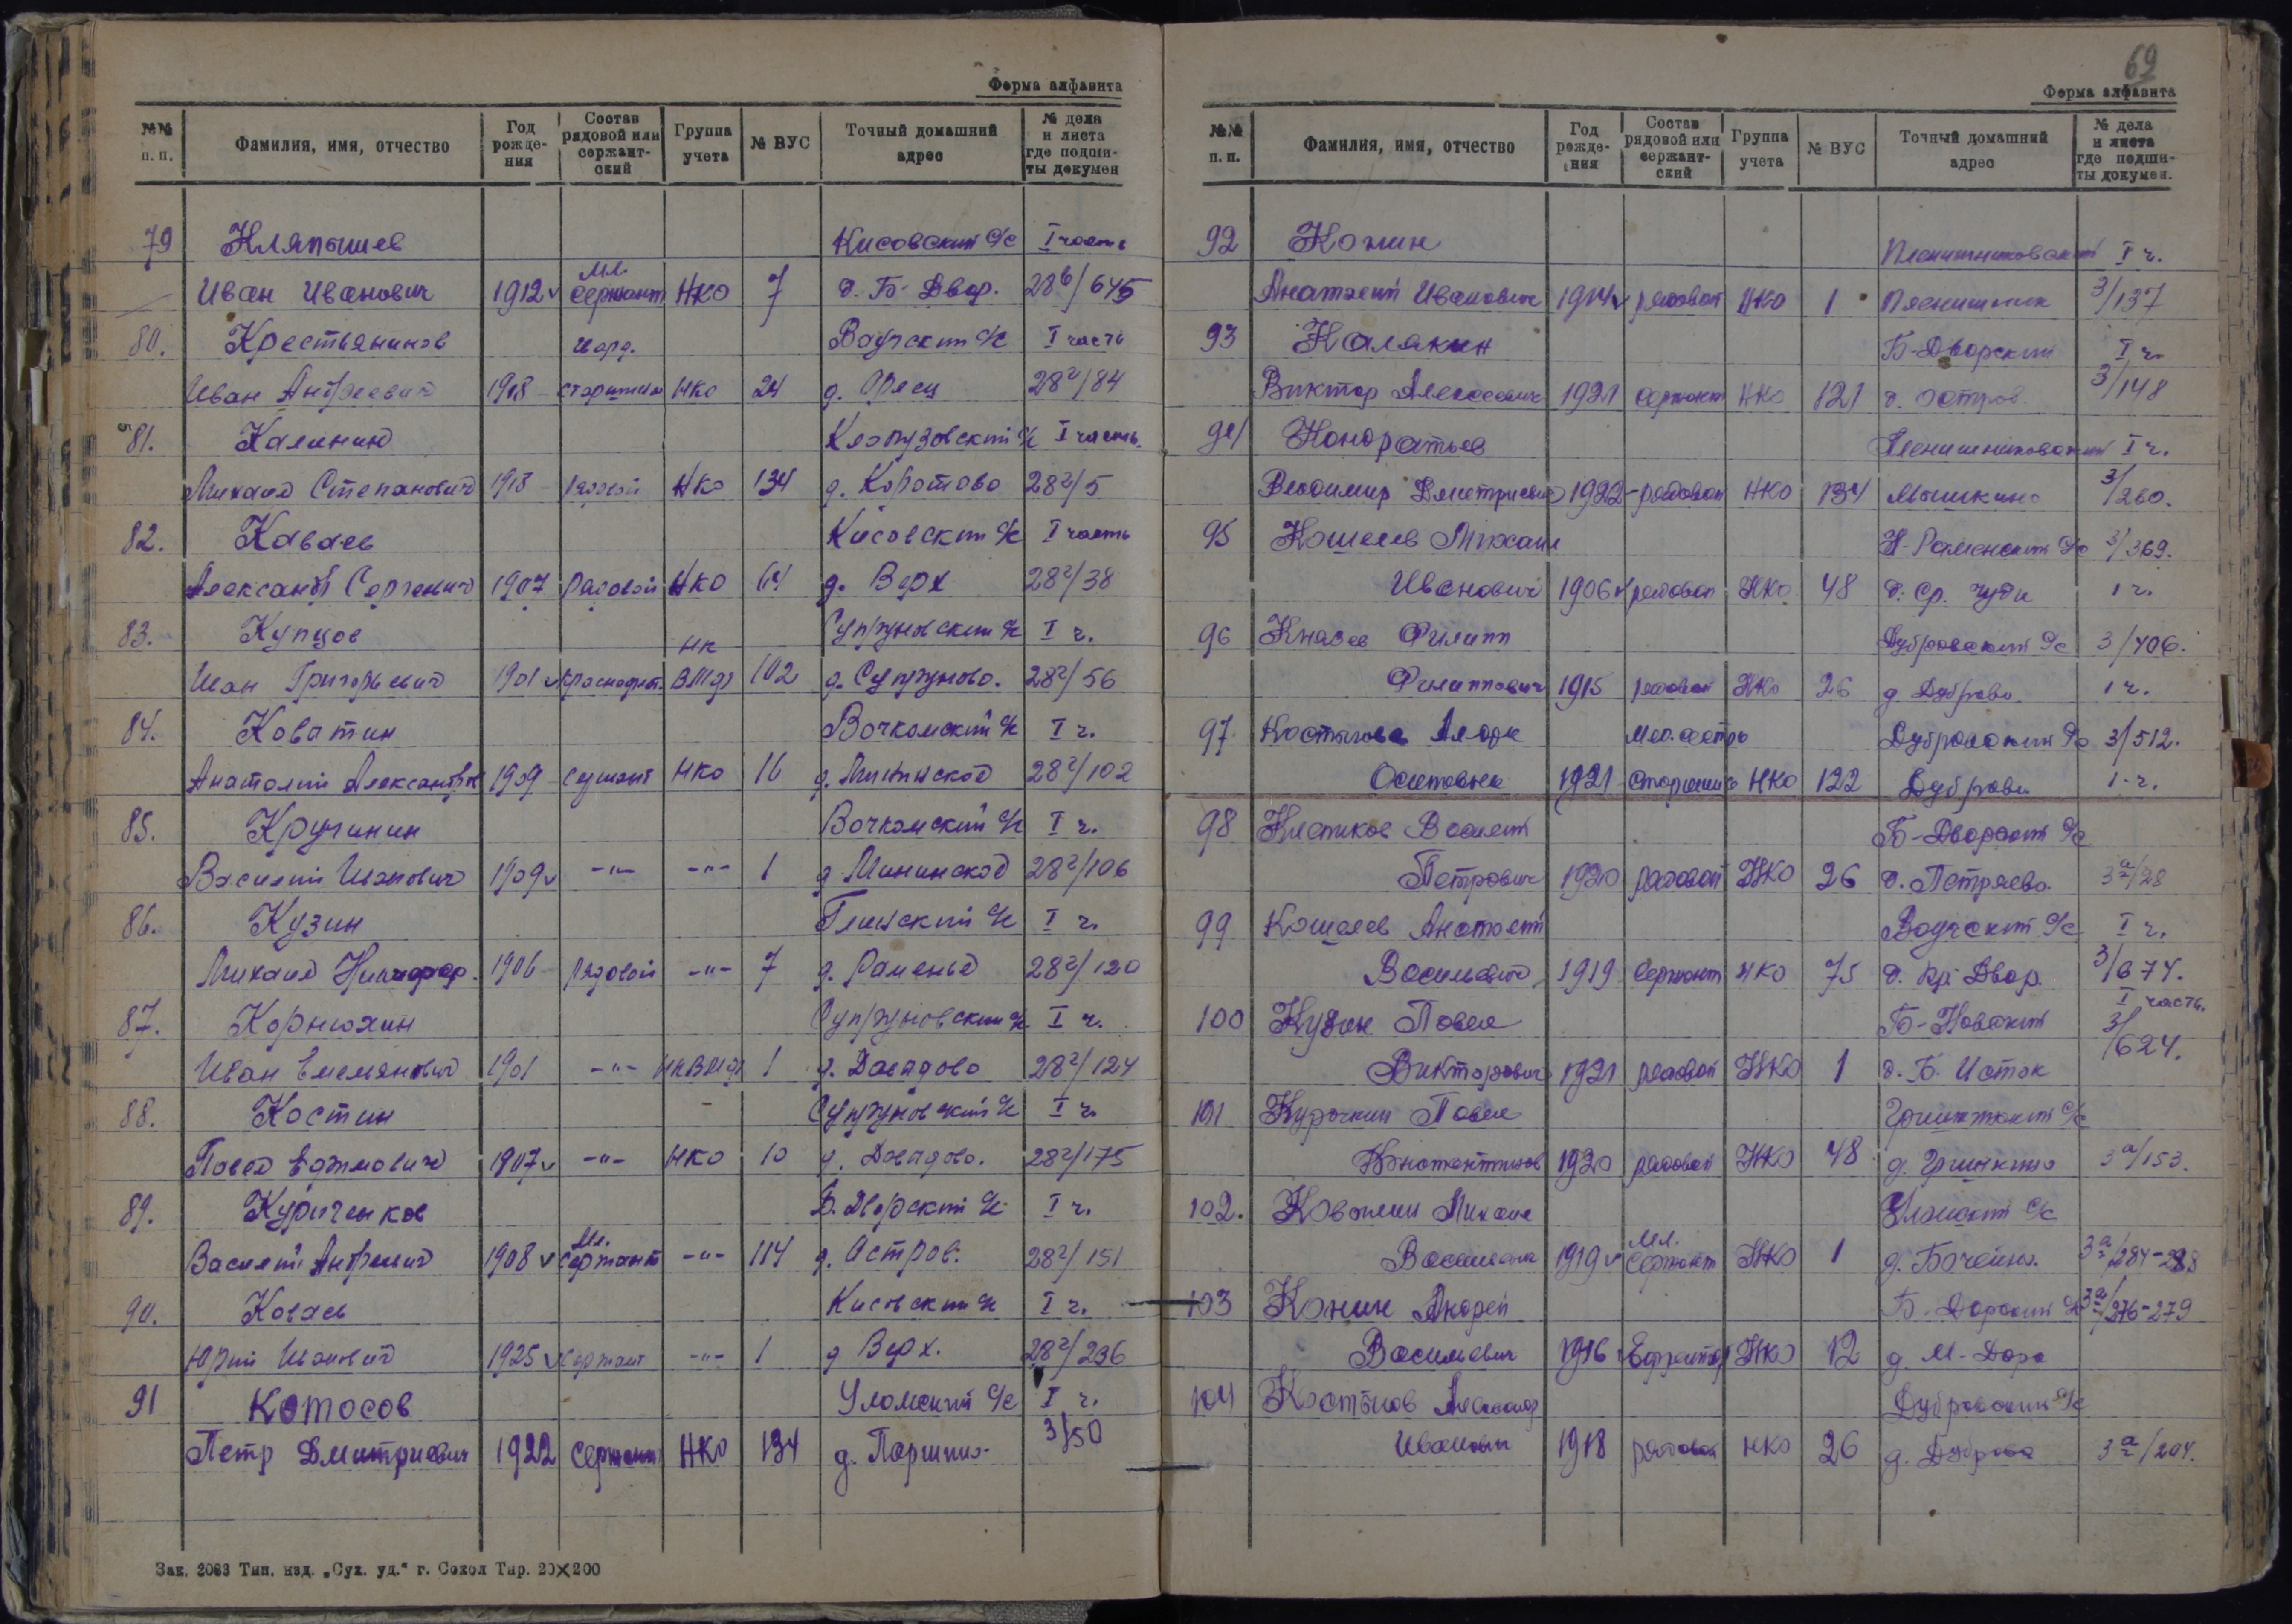 Форма алфавита
№№ п. п. Фамилия, имя, отчество Год рожде-ния Состав рядовой или сержант-ский Группа учета № ВУС Точный домашний адрес № дела и листа где подши-ты докумен
79 Кляпышев Кисовский с/с I часть
Иван Иванович 1912 мл. сержант НКО 7 д. Б-Двор. 28б/645
80. Крестьянинов Ваучский с/с I часть
Иван Андреевич 1908 старшина НКО 24 28г/84
81. Калинин с/с I часть.
Михаил Степанович 1918 рядовой НКО 134 д. Коротово 28г/5
82. Каваев Кисовский с/с I часть
Александр Сергеевич 1907 рядовой НКО 64 д. Верх 28г/38
83. Купцов с/с I ч.
Иван Григорьевич 1901 краснофлот. НК ВМФ 102 28г/56
84. Коватин с/с I ч.
Анатолий Александров 1909 сержант НКО 16 28г/102
85. Кручинин с/с I ч.
Василий Иванович 1909 -"- -"- 1 28г/106
86. Кузин с/с I ч.
Михаил 1906 рядовой -"- 7 д. Раменье 28г/120
87. Корнюхин с/с I ч.
Иван Емельянович 1901 -"- НКВМФ 1 28г/124
88. Костин с/с I ч.
Павел 1907 -"- НКО 10 28г/175
89. Куриченков Б.Дворский с/с I ч.
Василий Андреевич 1908 мл. сержант -"- 114 д. Остров. 28г/151
90. Коваев Кисовский с/с I ч.
Юрий Иванович 1925 сержант -"- 1 д Верх. 28г/236
91 Котосов Уломский с/с I ч.
Петр Дмитриевич 1922 сержант НКО 134 3/50
Зак. 2083 Тип. изд. „Сух. уд.“ г. Сокол Тир. 20×200
69
Форма алфавита
№№ п. п. Фамилия, имя, отчество Год рожде-ния Состав рядовой или сержант-ский Группа учета № ВУС Точный домашний адрес № дела и листа где подши-ты докумен.
92 Конин I ч.
Анатолий Иванович 1914 рядовой НКО 1 3/137
93 Калякин Б-Дворский I ч.
Виктор Алексеевич 1921 сержант НКО 121 д. Остров. 3/148
94 Кондратьев I ч.
Владимир Дмитриевич 1922 рядовой НКО 134 Мышкино 3/260.
95 Кошелев Михаил с/с 3/369.
Иванович 1906 рядовой НКО 48 д. Ср. Чуди 1 ч.
96 Князев Филипп Дубровский с/с 3/406.
Филиппович 1915 рядовой НКО 26 д. Дуброва 1 ч.
97 Мед. сестра Дубровский с/с 3/512.
Осиповна 1921 старшина НКО 122 Дуброва 1-ч.
98 Клепиков Василий Б-Дворский с/с
Петрович 1920 рядовой НКО 26 д. Петряево. 3а/28
99 Кошелев Анатолий Ваучский с/с I ч.
Васильевич 1919 сержант НКО 75 д. Кр. Двор. 3/674.
100 Кузин Павел I часть.
Викторович 1921 рядовой НКО 1 д. Б. Исток 3/624.
101 Курочкин Павел с/с
Константинов 1920 рядовой НКО 48 3а/153.
102. Михаил Уломский с/с
1919 мл. сержант НКО 1 3а/284-288
103 Конин Андрей с/с 3а/276-279
Васильевич 1916 Ефрейтор НКО 12 д. М-Дора
104 Александр Дубровский с/с
Иванович 1918 рядовой НКО 26 д. Дуброва 3а/204.